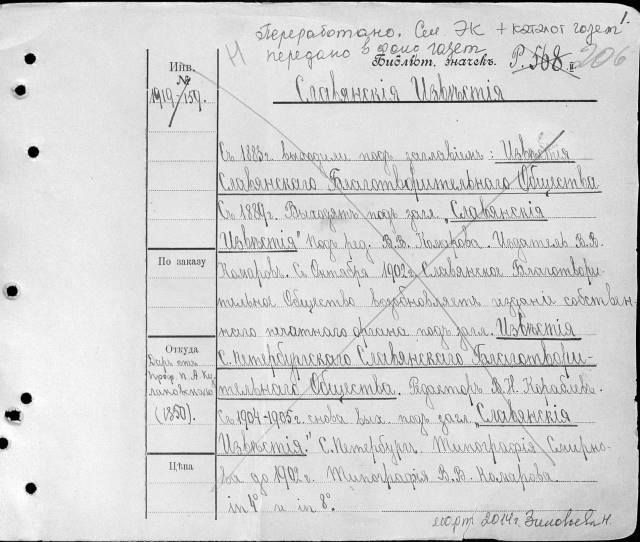 1.
Переработано. См ЭК + каталог газет
передано в фонд газет
Н
Библіот. значекъ. Р. 568 II 206
Инв.
№
1919-159.
Славянскія Извѣстія
Съ 1883 г. выходили подъ заглавіемъ: Извѣстія
Славянскаго Благотворительнаго Общества
Съ 1889 г. Выходятъ подъ загл. „Славянскія
Извѣстія" подъ ред. В. В. Комарова. Издатель В. В.
По заказу
Комаровъ. Съ Октября 1902 г. Славянское Благотвори-
тельное Общество возобновляетъ изданіе собствен-
наго печатнаго органа подъ загл. Извѣстія
Откуда
Даръ отъ
проф. П. А. Ку
лаковскаго
(1350).
С. Петербургскаго Славянскаго Благотвори-
тельнаго Общества. Редакторъ В. Н. Кораблевъ.
Съ 1904-1905 г. снова вых. подъ загл. „Славянскія
Извѣстія." С. Петербургъ. Типографія Смирно-
Цѣна
ва до 1902 г. Типографія В. В. Комарова
in 4° и in 8°.
март 2014 г. Зиновьева Н.